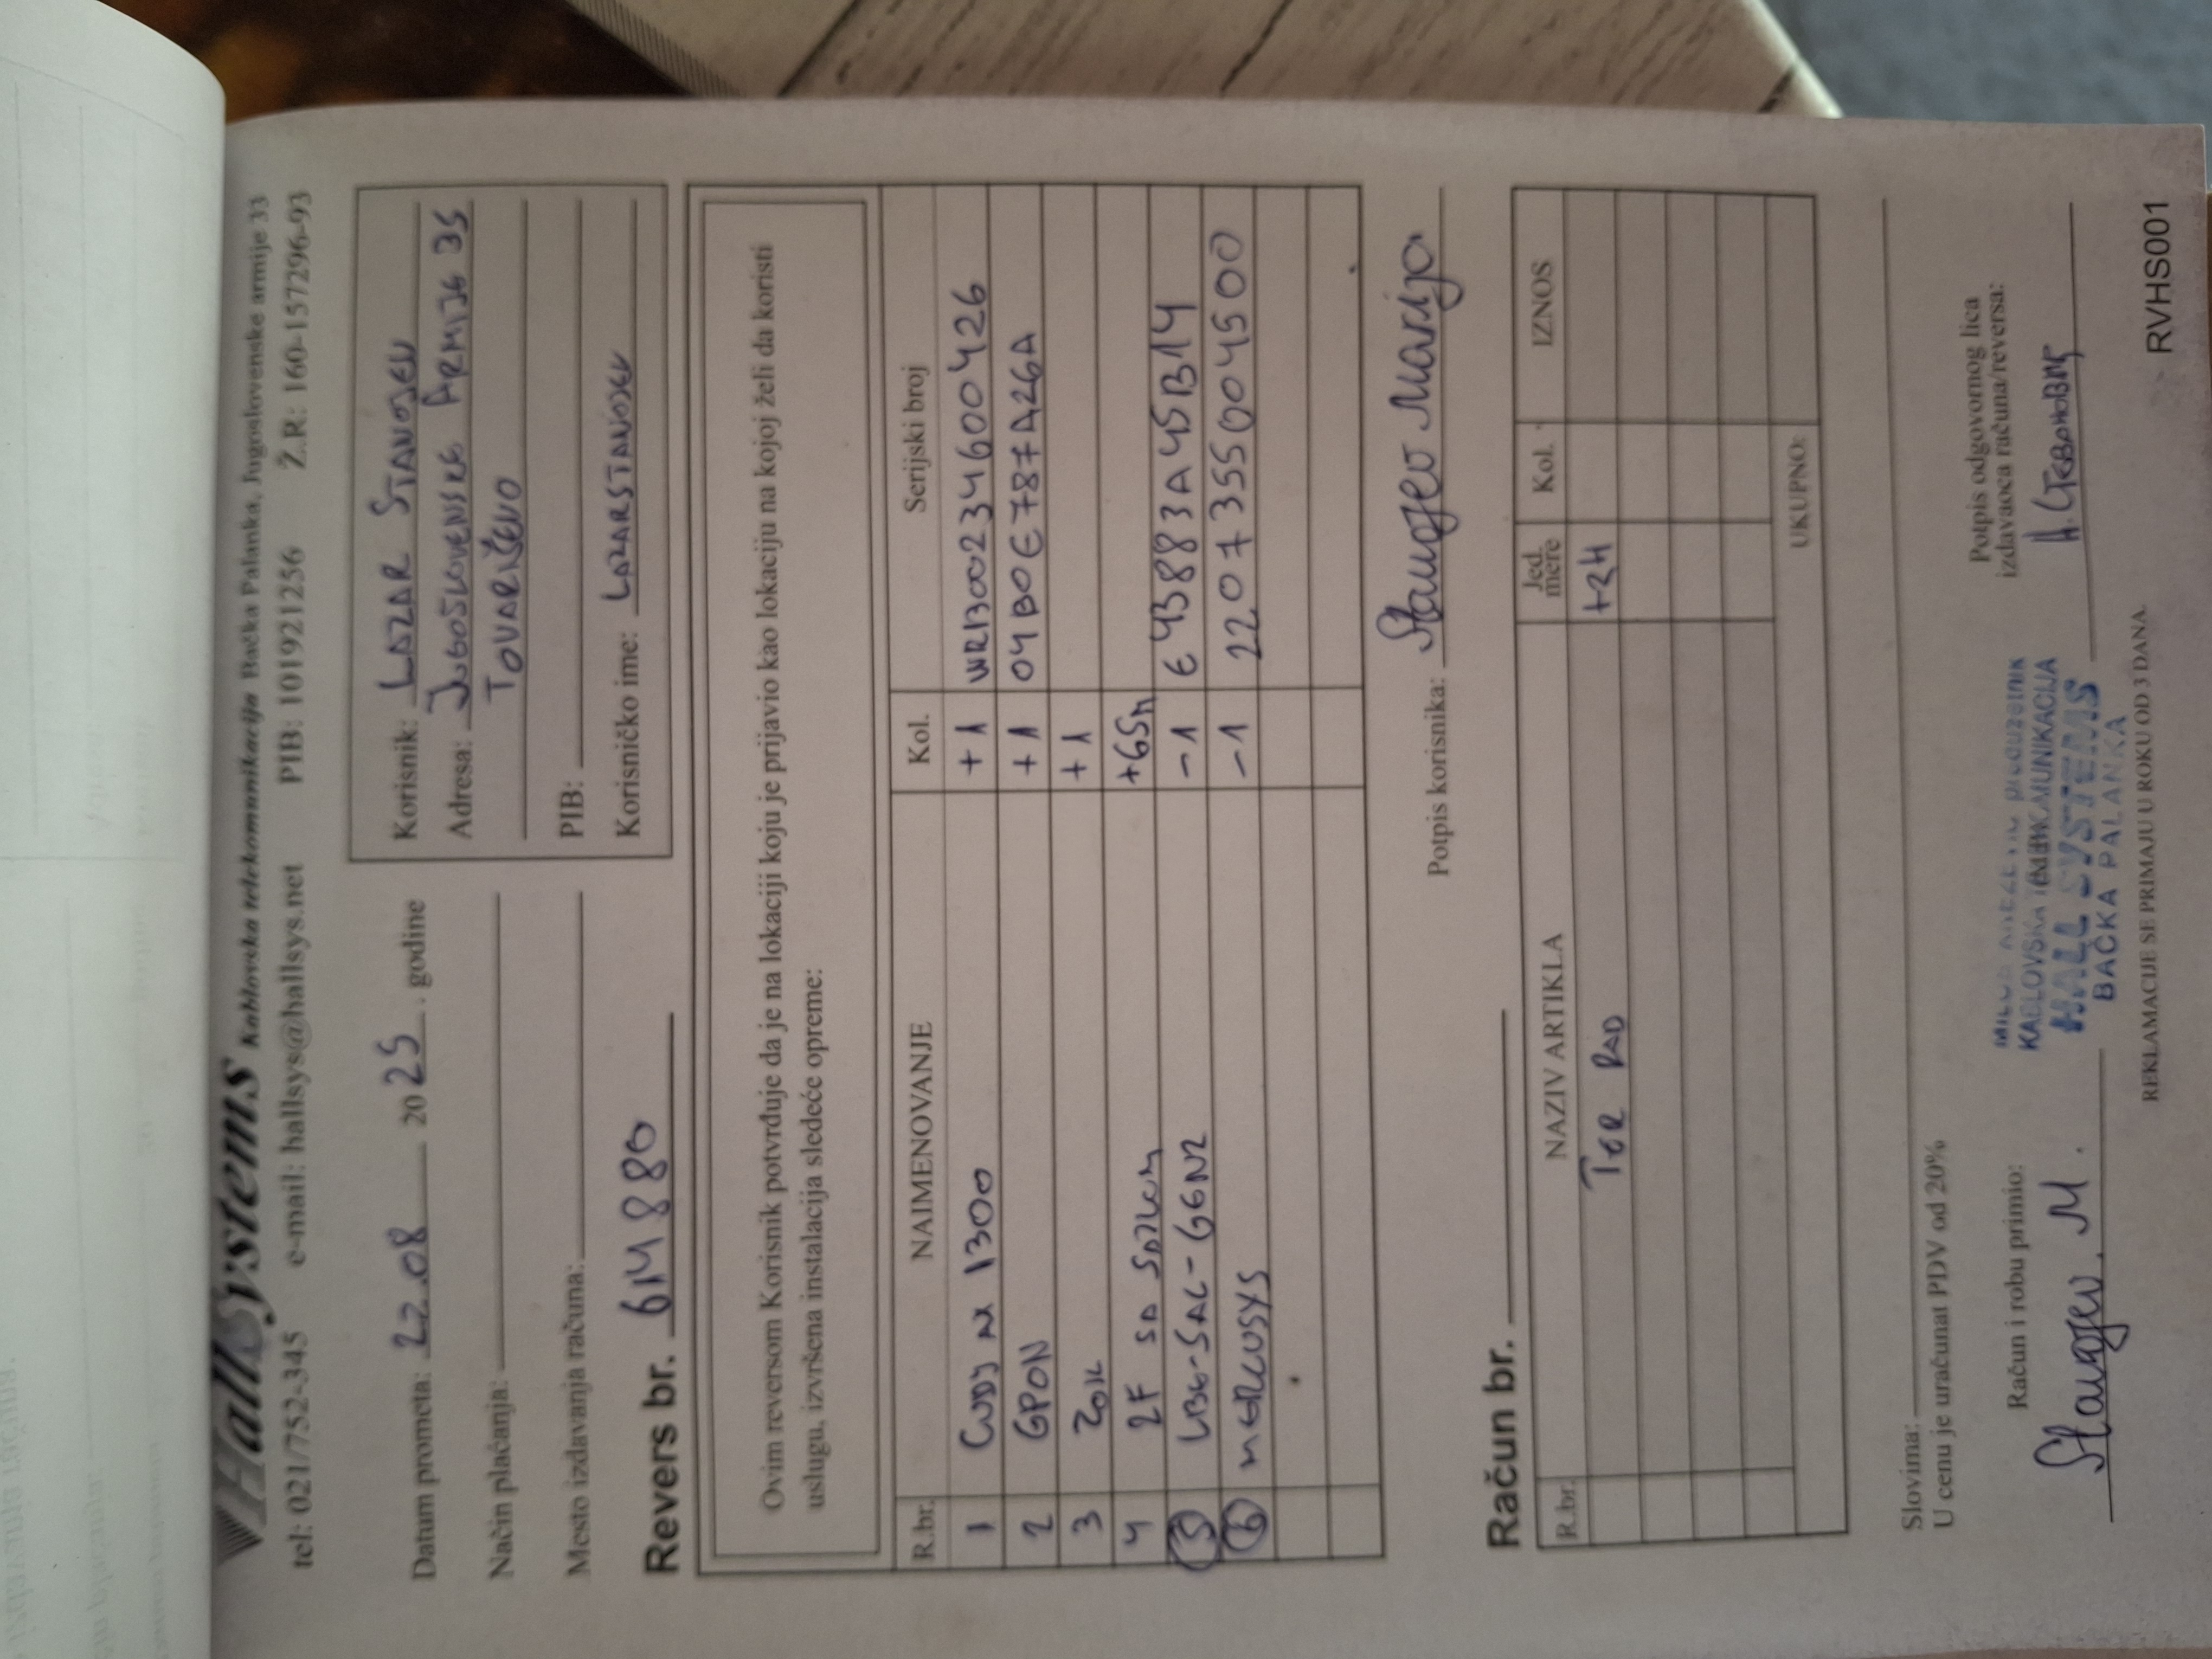 HallSystems Kablovska telekomunikacija Bačka Palanka, Jugoslovenske armije 33
tel: 021/752-345 e-mail: hallsys@hallsys.net PIB: 101921256 Ž.R: 160-157296-93
Datum prometa: 22.08 2025. godine
Način plaćanja:
Mesto izdavanja računa:
Korisnik: LAZAR STANOJEV
Adresa: JUGOSLOVENSKE ARMIJE 35
TOVARIŠEVO
PIB:
Korisničko ime: LAZARSTANOJEV
Revers br. 614880
Ovim reversom Korisnik potvrđuje da je na lokaciji koju je prijavio kao lokaciju na kojoj želi da koristi
uslugu, izvršena instalacija sledeće opreme:
R.br. NAIMENOVANJE Kol. Serijski broj
1 CUDY 1300 +1 WR13002334600426
2 GPON +1 04B0E787A26A
3 ZOK +1
4 2F SA +65m
5 LBE-5AC-GEN2 -1 E43883A45B14
6 MERCUSYS -1 2207355004500
Potpis korisnika: Stanojev Marija
Račun br.
R.br. NAZIV ARTIKLA Jed. mere Kol. IZNOS
TER RAD +2H
UKUPNO:
Slovima:
U cenu je uračunat PDV od 20%
Račun i robu primio:
Stanojev. M.
KABLOVSKA TELEKOMUNIKACIJA
HALL SYSTEMS
BAČKA PALANKA
Potpis odgovornog lica
izdavaoca računa/reversa:
REKLAMACIJE SE PRIMAJU U ROKU OD 3 DANA.
RVHS001